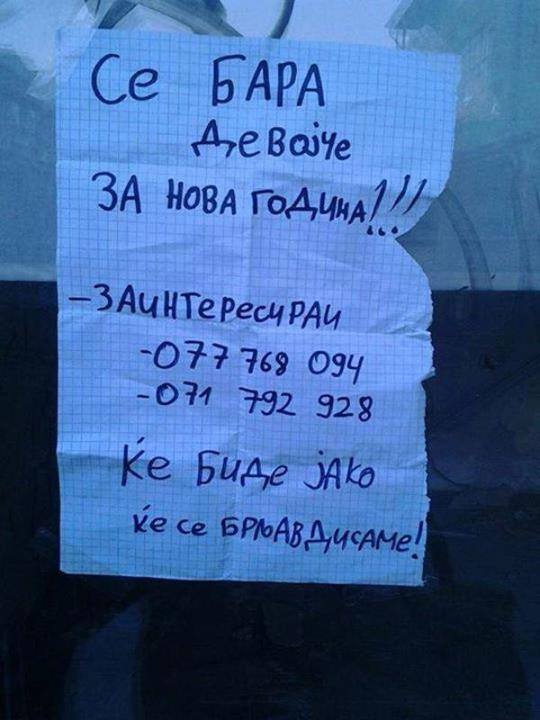 Се БАРА
Девојче
ЗА НОВА ГОДИНА!!!
-ЗАИНТЕРЕСИРАИ
-077 768 094
-071 792 928
Ќе БИДе ЈАКО
ќе се БРЉАВДИСАМЕ!